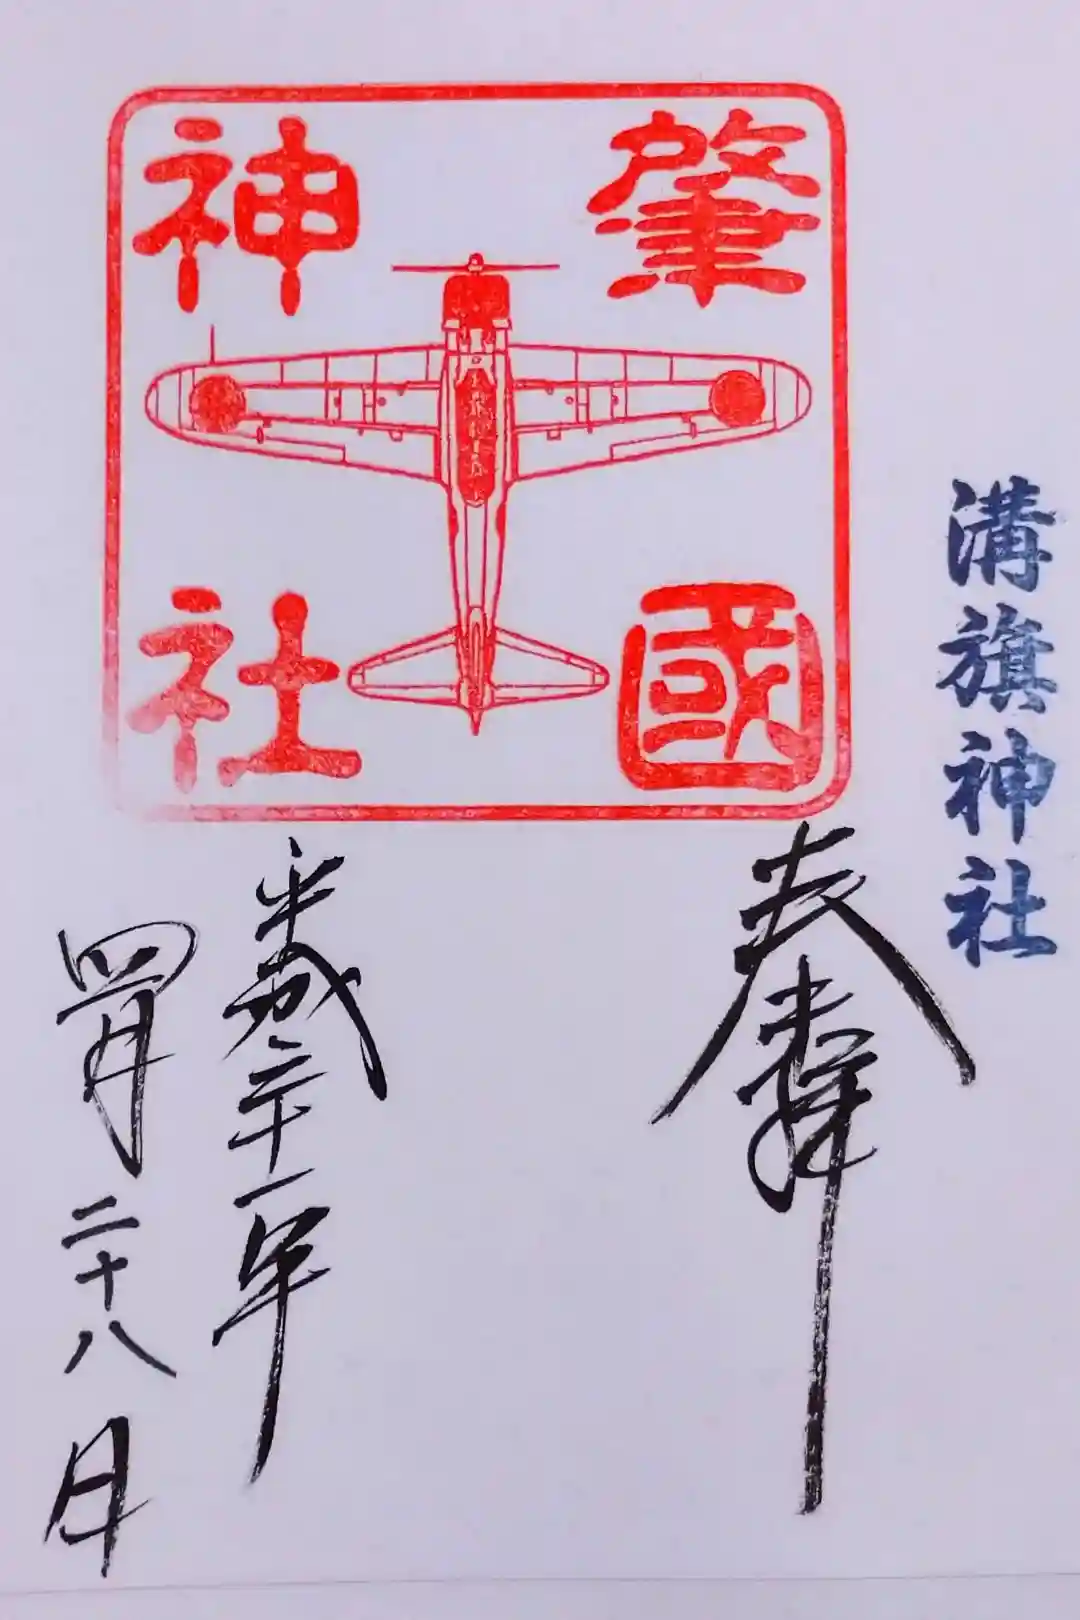 溝旗神社
肇國
神社
奉拝
平成三十一年
四月二十八日